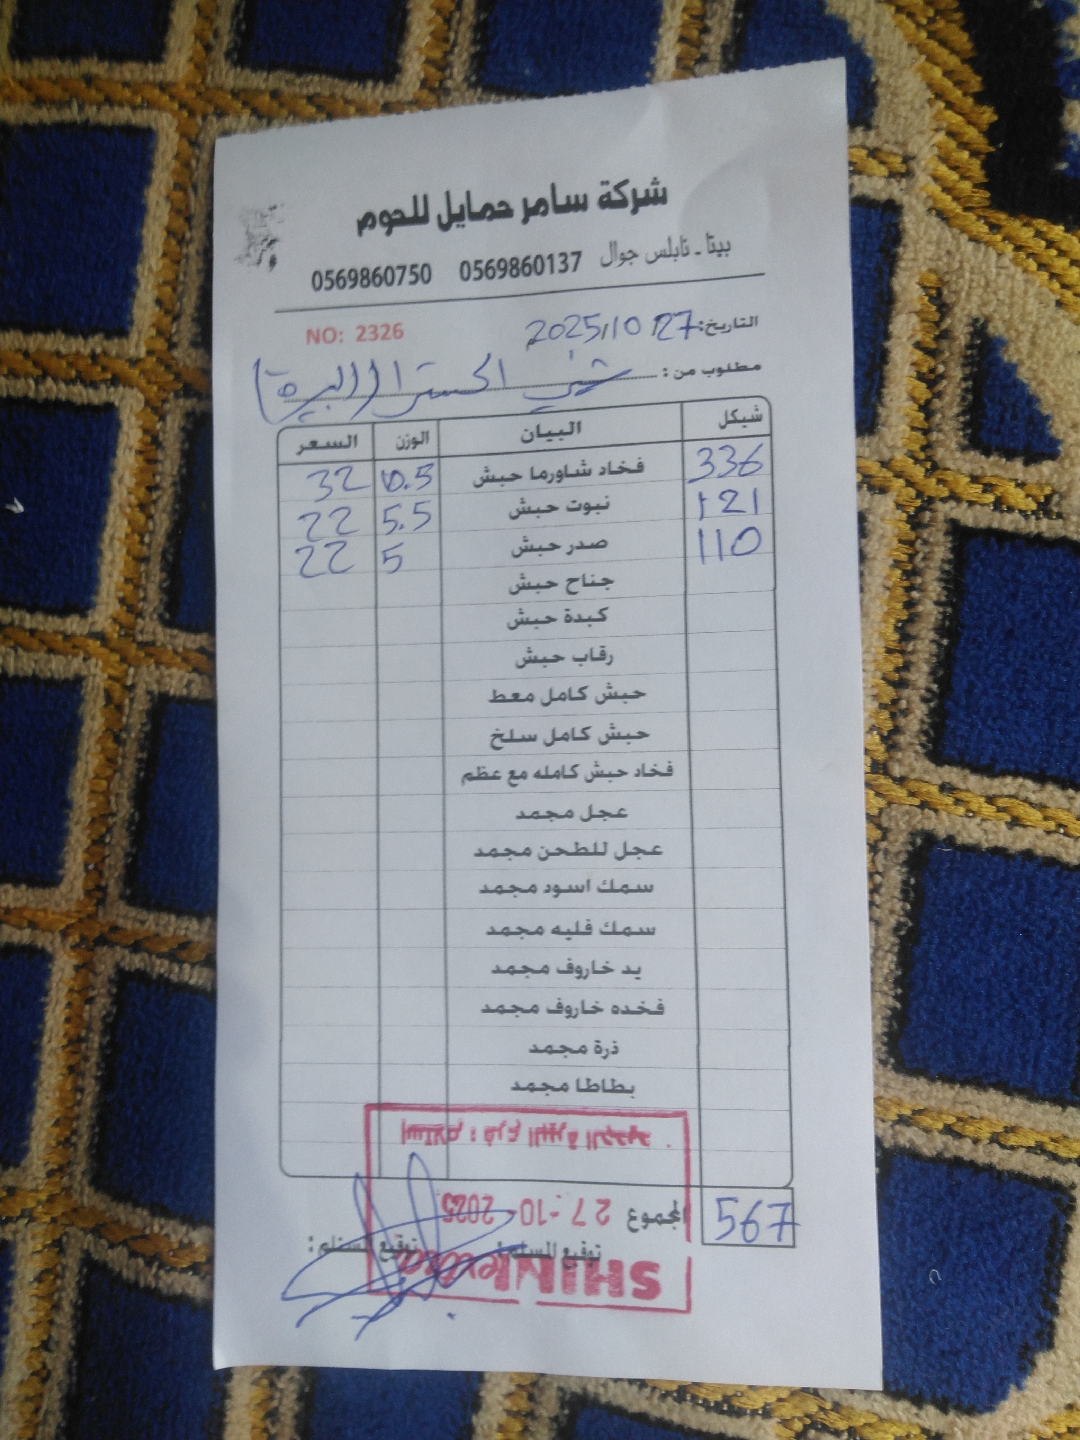 شركة سامر حمايل للحوم
بيتا - نابلس جوال 0569860137 0569860750
NO: 2326
التاريخ: 2025/10/27
مطلوب من : شني اكسترا (البيرة)
شيكل البيان الوزن السعر
336 فخاد شاورما حبش 10.5 32
121 نبوت حبش 5.5 22
110 صدر حبش 5 22
جناح حبش
كبدة حبش
رقاب حبش
حبش كامل معط
حبش كامل سلخ
فخاد حبش كامله مع عظم
عجل مجمد
عجل للطحن مجمد
سمك اسود مجمد
سمك فليه مجمد
يد خاروف مجمد
فخده خاروف مجمد
ذرة مجمد
بطاطا مجمد
إستلام : فرع البيرة الجديد
567 المجموع
27-10-2025
توقيع المسلم : توقيع المستلم :
SHINI extra